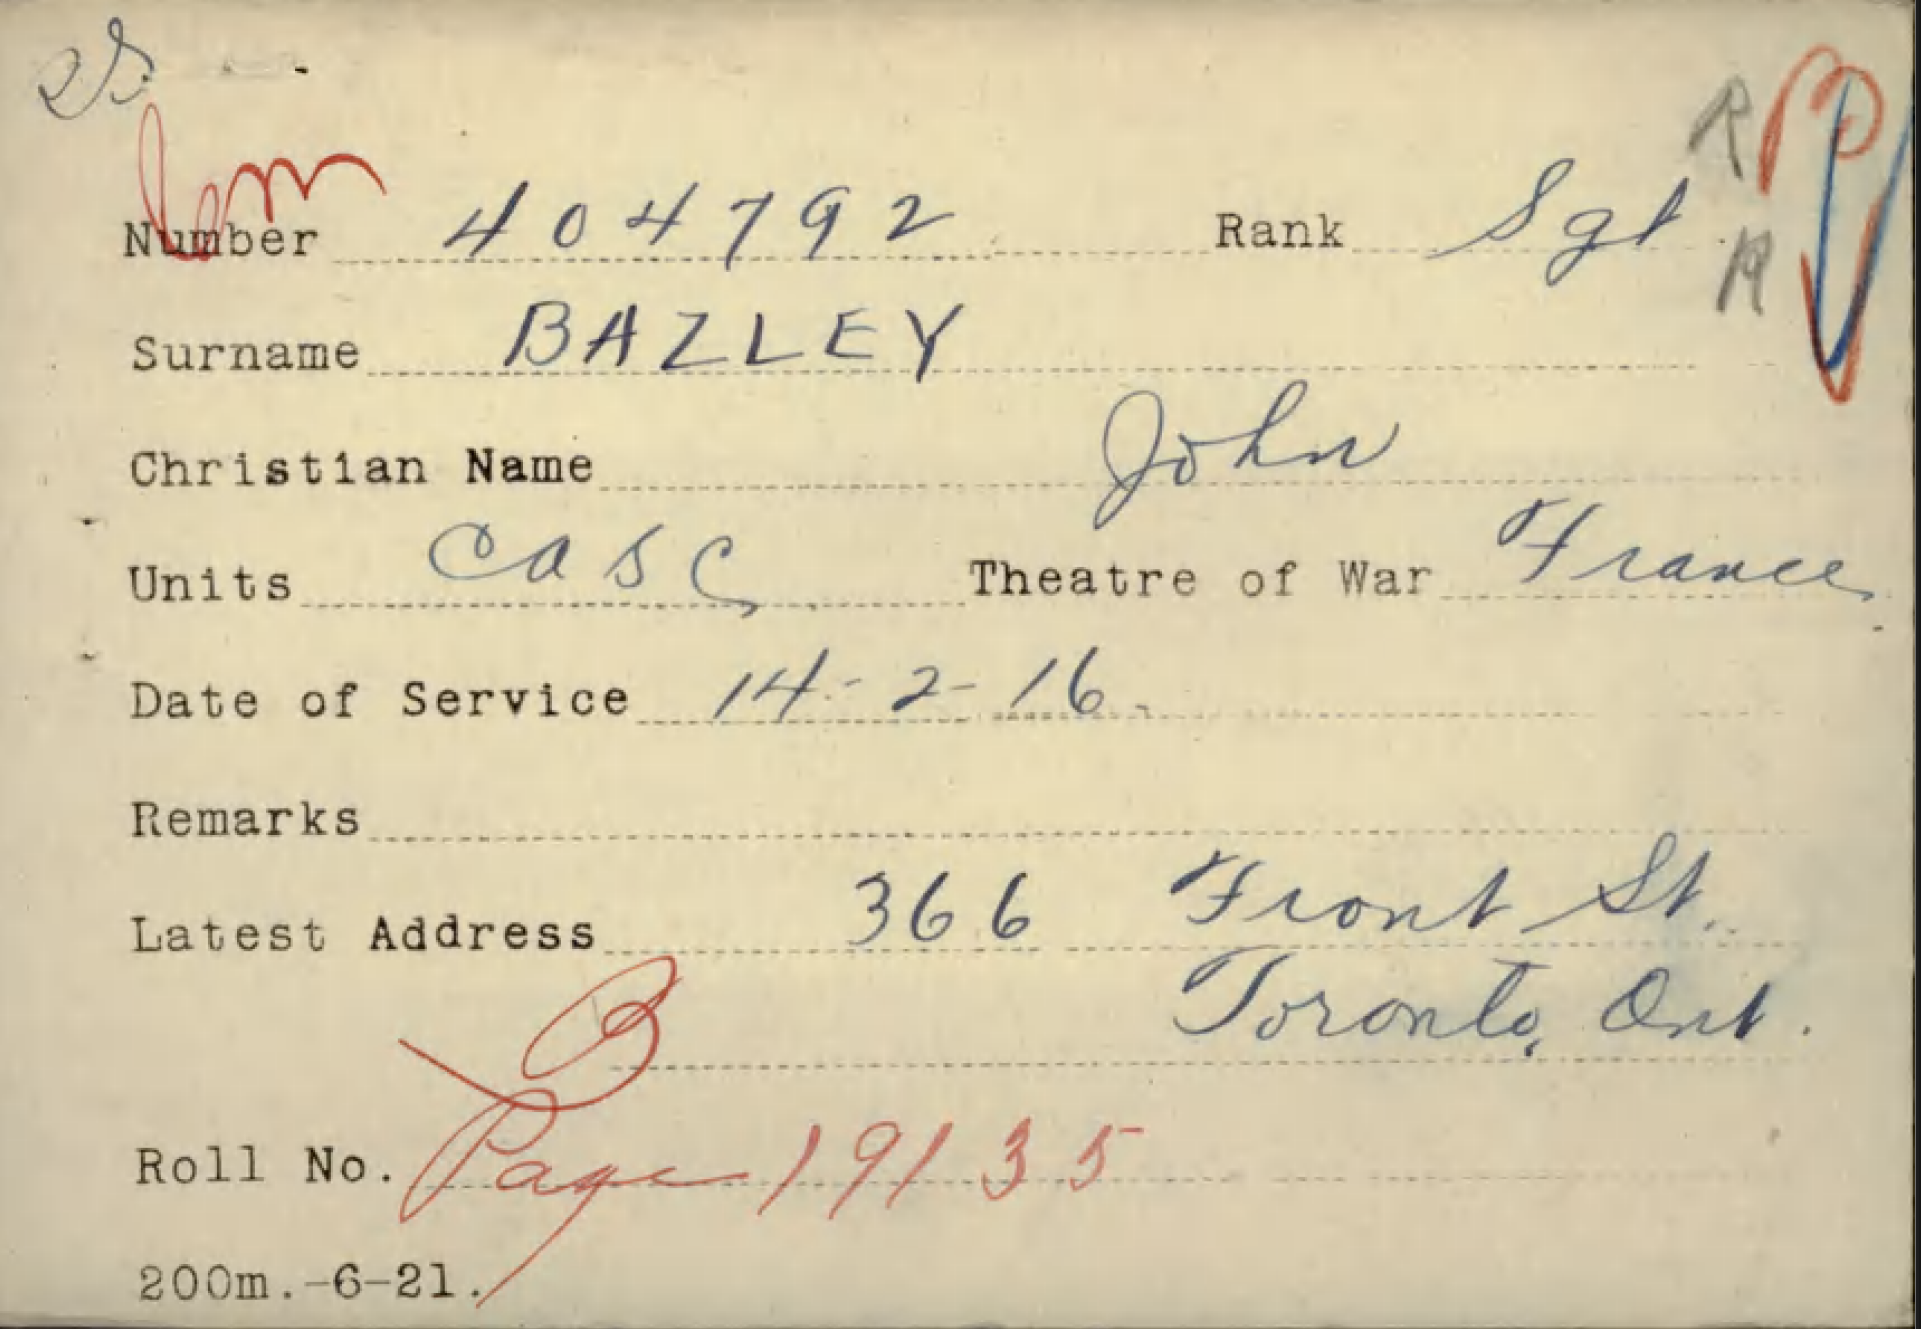 Number 404792 Rank Sgt
Surname BAZLEY
Christian Name John
Units CASC Theatre of War France
Date of Service 14-2-16.
Remarks
Latest Address 366 Front St.
Toronto, Ont.
B
Roll No. Page 19135
200m.-6-21.